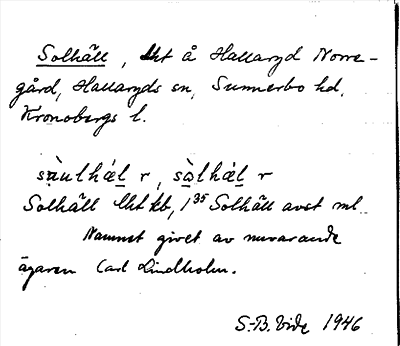 Solhäll, lht å Hallaryd Norre-
gård, Hallaryds sn, Sunnerbo hd,
Kronobergs l.
sàulhǽl r, sòlhǽl r
Solhäll lht kb, 1³⁵ Solhäll avst ml.
Namnet givet av nuvarande
ägaren Carl Lindholm.
S.-B. Vide 1946